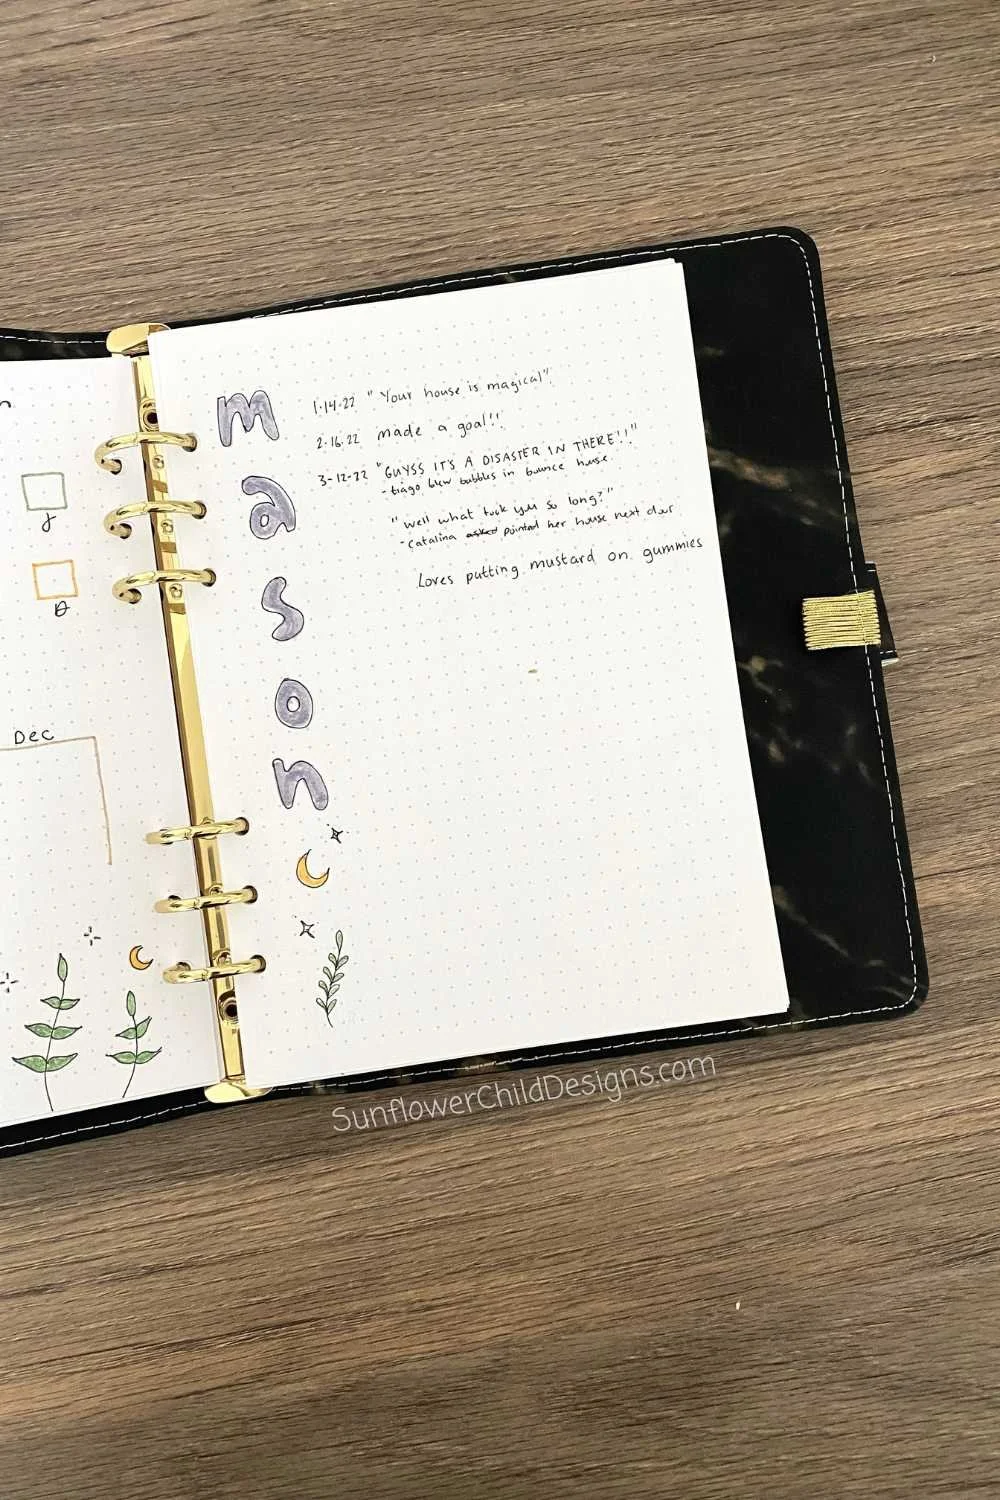 J
D
Dec
mason
1-14-22 "Your house is magical".
2-16-22 made a goal!!
3-12-22 "GUYSS IT'S A DISASTER IN THERE!!"
- tiago blew bubbles in bounce house.
"well what took you so long?"
- Catalina asked pointed her house next door
Loves putting mustard on gummies
SunflowerChildDesigns.com